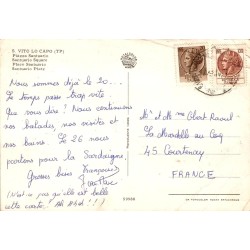 S. VITO LO CAPO (TP)
Piazza Santuario
Santuario Square
Place Santuario
Santuario Platz
Nous sommes déjà le 20...
Le temps passe trop vite
que dire ! Nous continuons
nos balades, nos visites et
nos bains. Le 26 nous
partons pour la Sardaigne,
Grosses bises Françoise
(N'est ce pas qu'elle est belle
cette carte! Ah Ah Ah ! )
Mr et Mme Robert Raoul
La
45 Courtenay
FRANCE